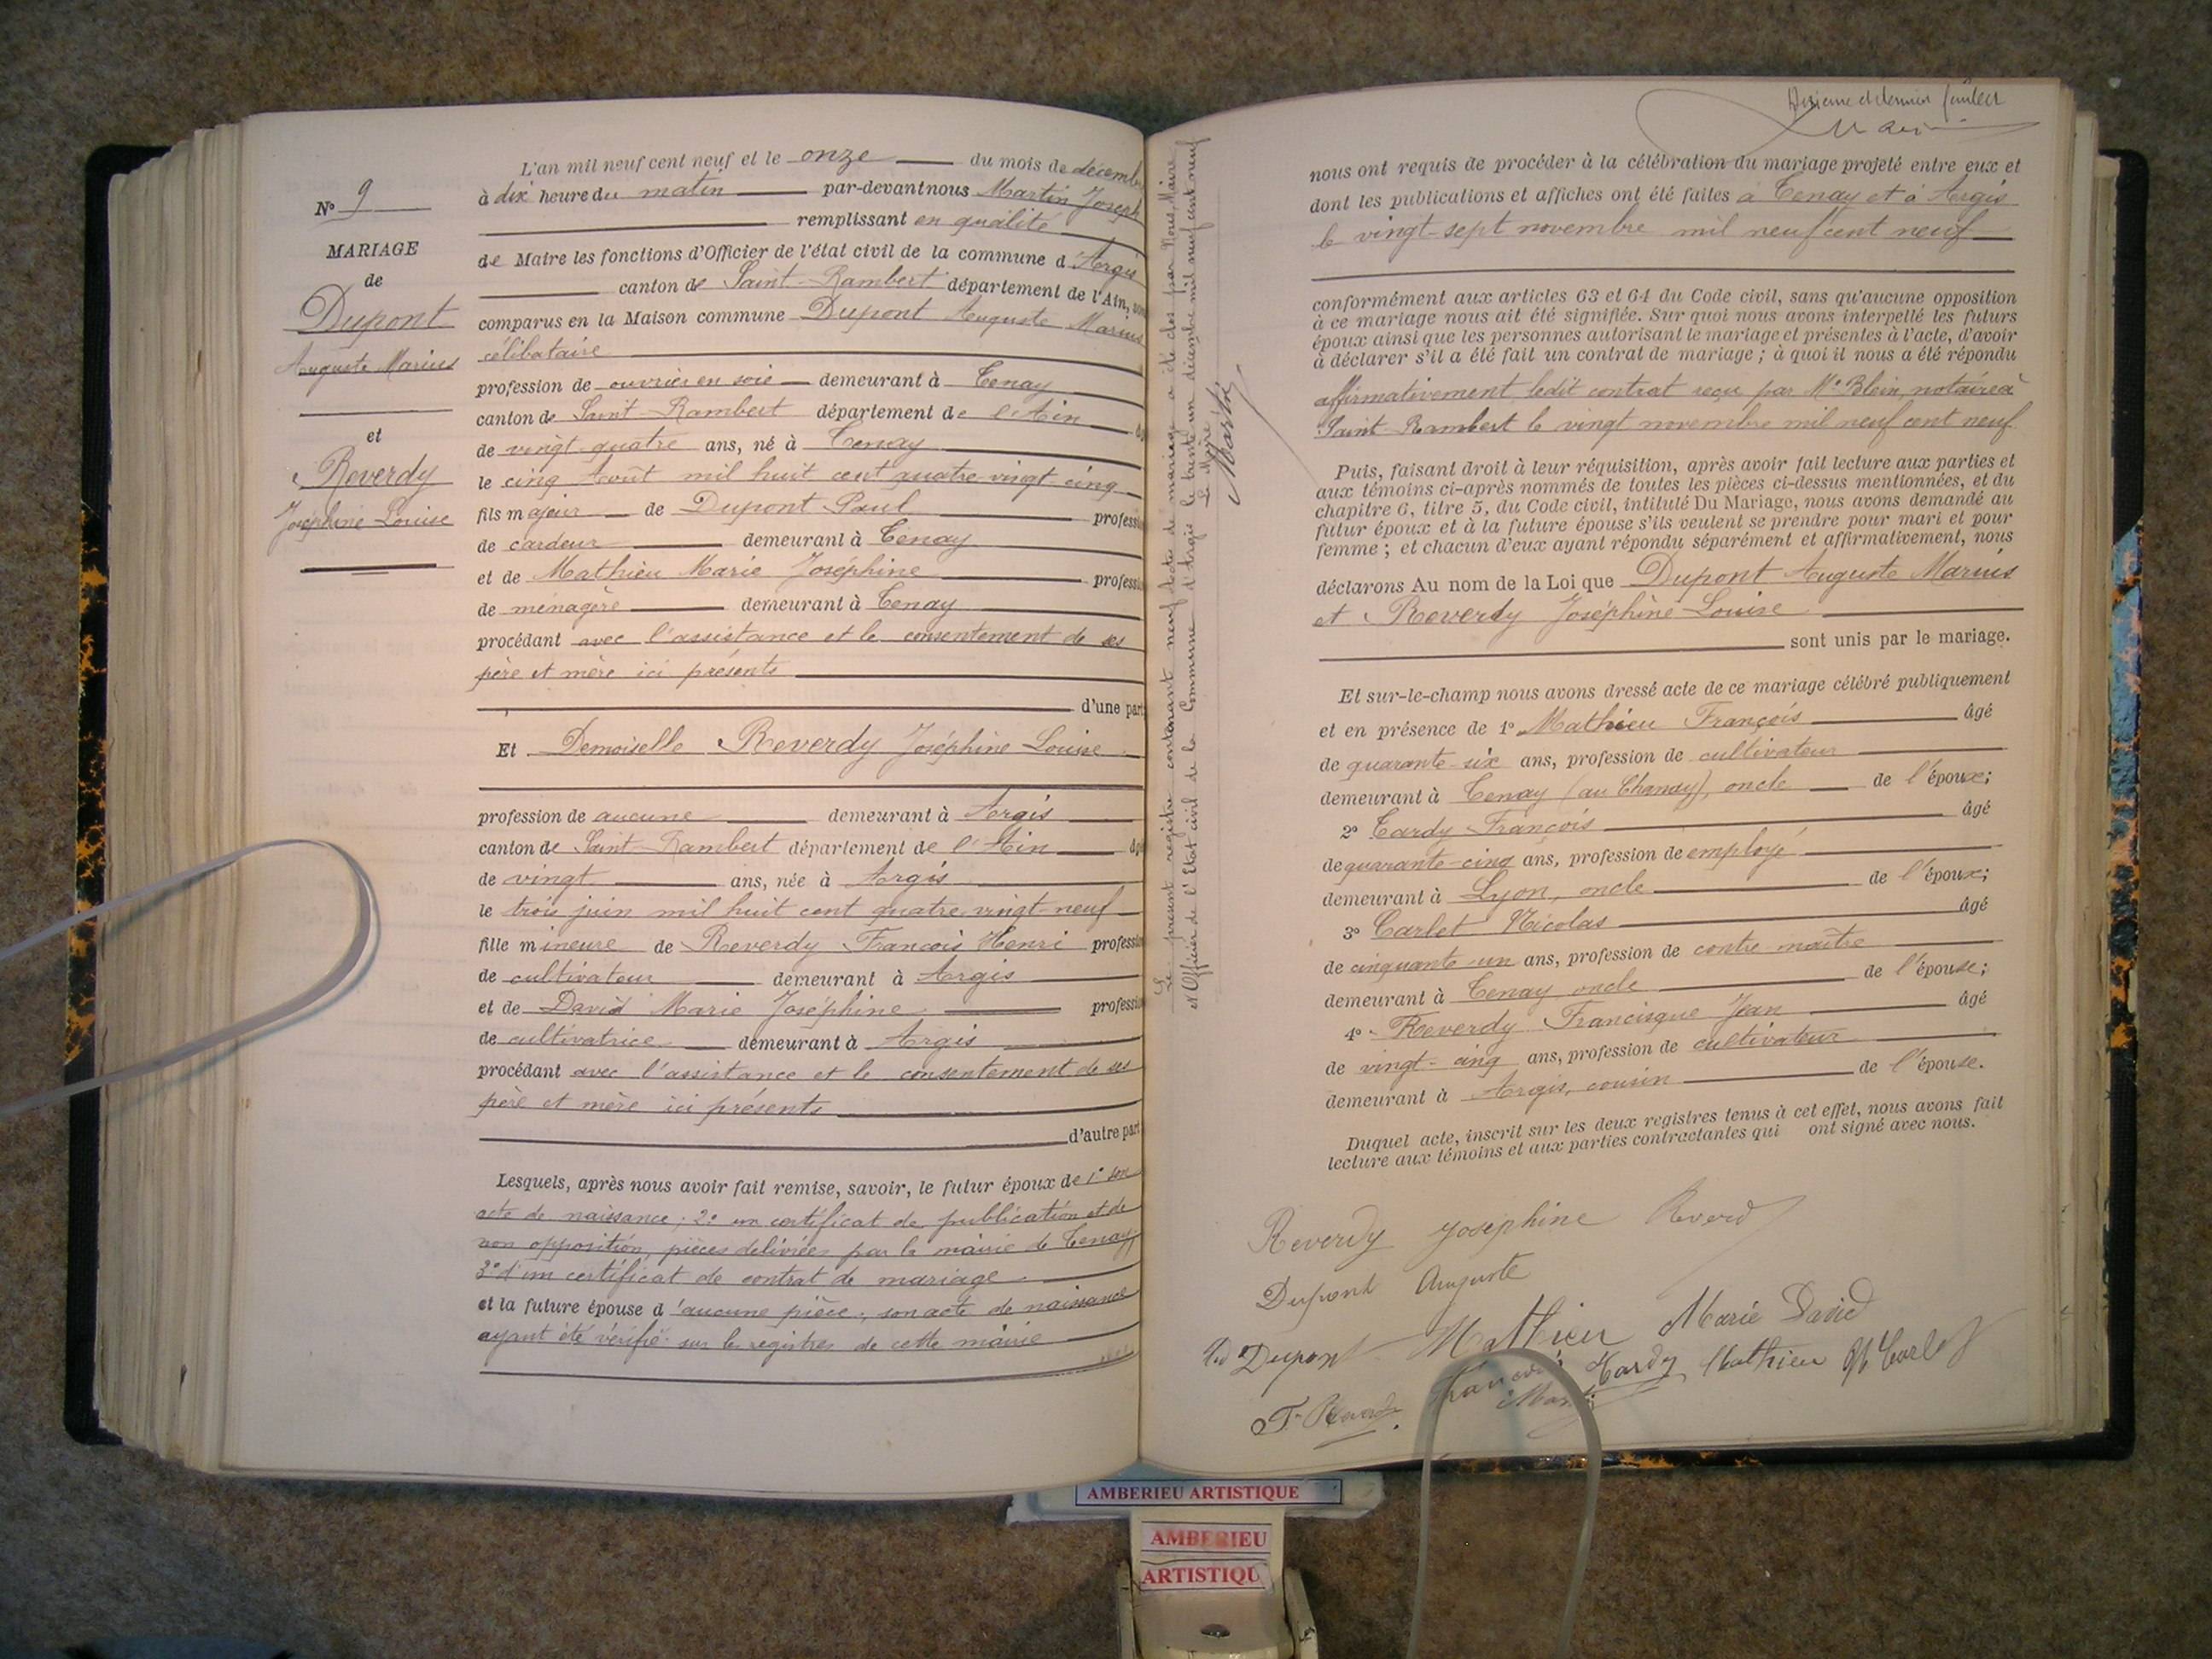 N° 9
MARIAGE
de
Dupont
Auguste Marius
et
Reverdy
Joséphine Louise
L'an mil neuf cent neuf et le onze du mois de décemb
à dix heure du matin par-devant nous Martin Joseph
remplissant en qualité
de Maire les fonctions d'Officier de l'état civil de la commune d'Argis
canton de Saint-Rambert département de l'Ain,
comparus en la Maison commune Dupont Auguste Marius
célibataire
profession de ouvrier en soie demeurant à Tenay
canton de Saint-Rambert département de l'Ain
de vingt-quatre ans, né à Tenay
le cinq Août mil huit cent quatre-vingt-cinq
fils majeur de Dupont Paul professi
de cardeur demeurant à Tenay
et de Mathieu Marie Joséphine professi
de ménagère demeurant à Tenay
procédant avec l'assistance et le consentement de ses
père et mère ici présents
d'une part
Et Demoiselle Reverdy Joséphine Louise
profession de aucune demeurant à Argis
canton de Saint-Rambert département de l'Ain
de vingt ans, née à Argis
le trois juin mil huit cent quatre-vingt-neuf
fille mineure de Reverdy François Henri professi
de cultivateur demeurant à Argis
et de David Marie Joséphine professi
de cultivatrice demeurant à Argis
procédant avec l'assistance et le consentement de ses
père et mère ici présents
d'autre part
Lesquels, après nous avoir fait remise, savoir, le futur époux de 1° son
acte de naissance; 2° un certificat de publication et de
non opposition, pièces délivrées par la mairie de Tenay;
3° d'un certificat de contrat de mariage
et la future épouse d'aucune pièce; son acte de naissance
ayant été vérifié sur le registre de cette mairie
Le présent registre contenant neuf actes de mariage a été clos par Nous, Maire
et Officier de l'Etat civil de la Commune d'Argis le trente-un décembre mil neuf cent neuf
Le Maire,
Martin
et dernier feuillet
nous ont requis de procéder à la célébration du mariage projeté entre eux et
dont les publications et affiches ont été faites à Tenay et à Argis
le vingt-sept novembre mil neuf cent neuf
conformément aux articles 63 et 64 du Code civil, sans qu'aucune opposition
à ce mariage nous ait été signifiée. Sur quoi nous avons interpellé les futurs
époux ainsi que les personnes autorisant le mariage et présentes à l'acte, d'avoir
à déclarer s'il a été fait un contrat de mariage; à quoi il nous a été répondu
affirmativement, ledit contrat reçu par Me Blein, notaire à
Saint-Rambert le vingt novembre mil neuf cent neuf.
Puis, faisant droit à leur réquisition, après avoir fait lecture aux parties et
aux témoins ci-après nommés de toutes les pièces ci-dessus mentionnées, et du
chapitre 6, titre 5, du Code civil, intitulé Du Mariage, nous avons demandé au
futur époux et à la future épouse s'ils veulent se prendre pour mari et pour
femme; et chacun d'eux ayant répondu séparément et affirmativement, nous
déclarons Au nom de la Loi que Dupont Auguste Marius
et Reverdy Joséphine Louise
sont unis par le mariage.
Et sur-le-champ nous avons dressé acte de ce mariage célébré publiquement
et en présence de 1° Mathieu François âgé
de quarante-six ans, profession de cultivateur
demeurant à Tenay (au Chanay), oncle de l'époux;
2° Tardy François âgé
de quarante-cinq ans, profession de employé
demeurant à Lyon, oncle de l'époux;
3° Carlet Nicolas âgé
de cinquante-un ans, profession de contre-maître
demeurant à Tenay oncle de l'épouse;
4° Reverdy Francisque Jean âgé
de vingt-cinq ans, profession de cultivateur
demeurant à Argis, cousin de l'épouse.
Duquel acte, inscrit sur les deux registres tenus à cet effet, nous avons fait
lecture aux témoins et aux parties contractantes qui ont signé avec nous.
Reverdy Joséphine Reverdy
Dupont Auguste
Dupont Mathieu Marie David
Tardy Mathieu Carlet
F. Reverdy
AMBERIEU ARTISTIQUE
AMBERIEU
ARTISTIQU